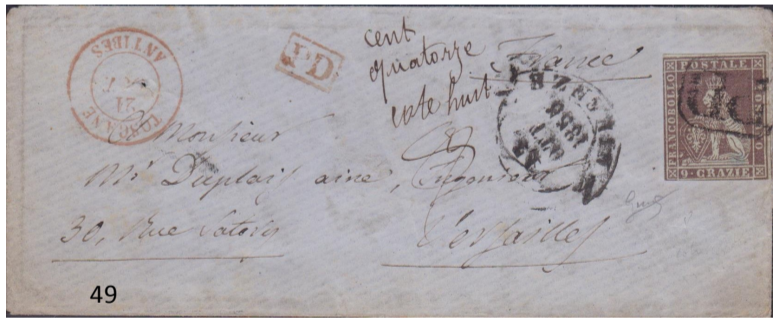 TOSCANE
21
ANTIBES
PD
cent
quatorze
cote huit
France
FIRENZE
OTT
1856
FRANCOBOLLO POSTALE TOSCANO
9 · GRAZIE
Monsieur
Mr Duplaij ainé, Ingénieur
30, Rue Satory
Versailles
49